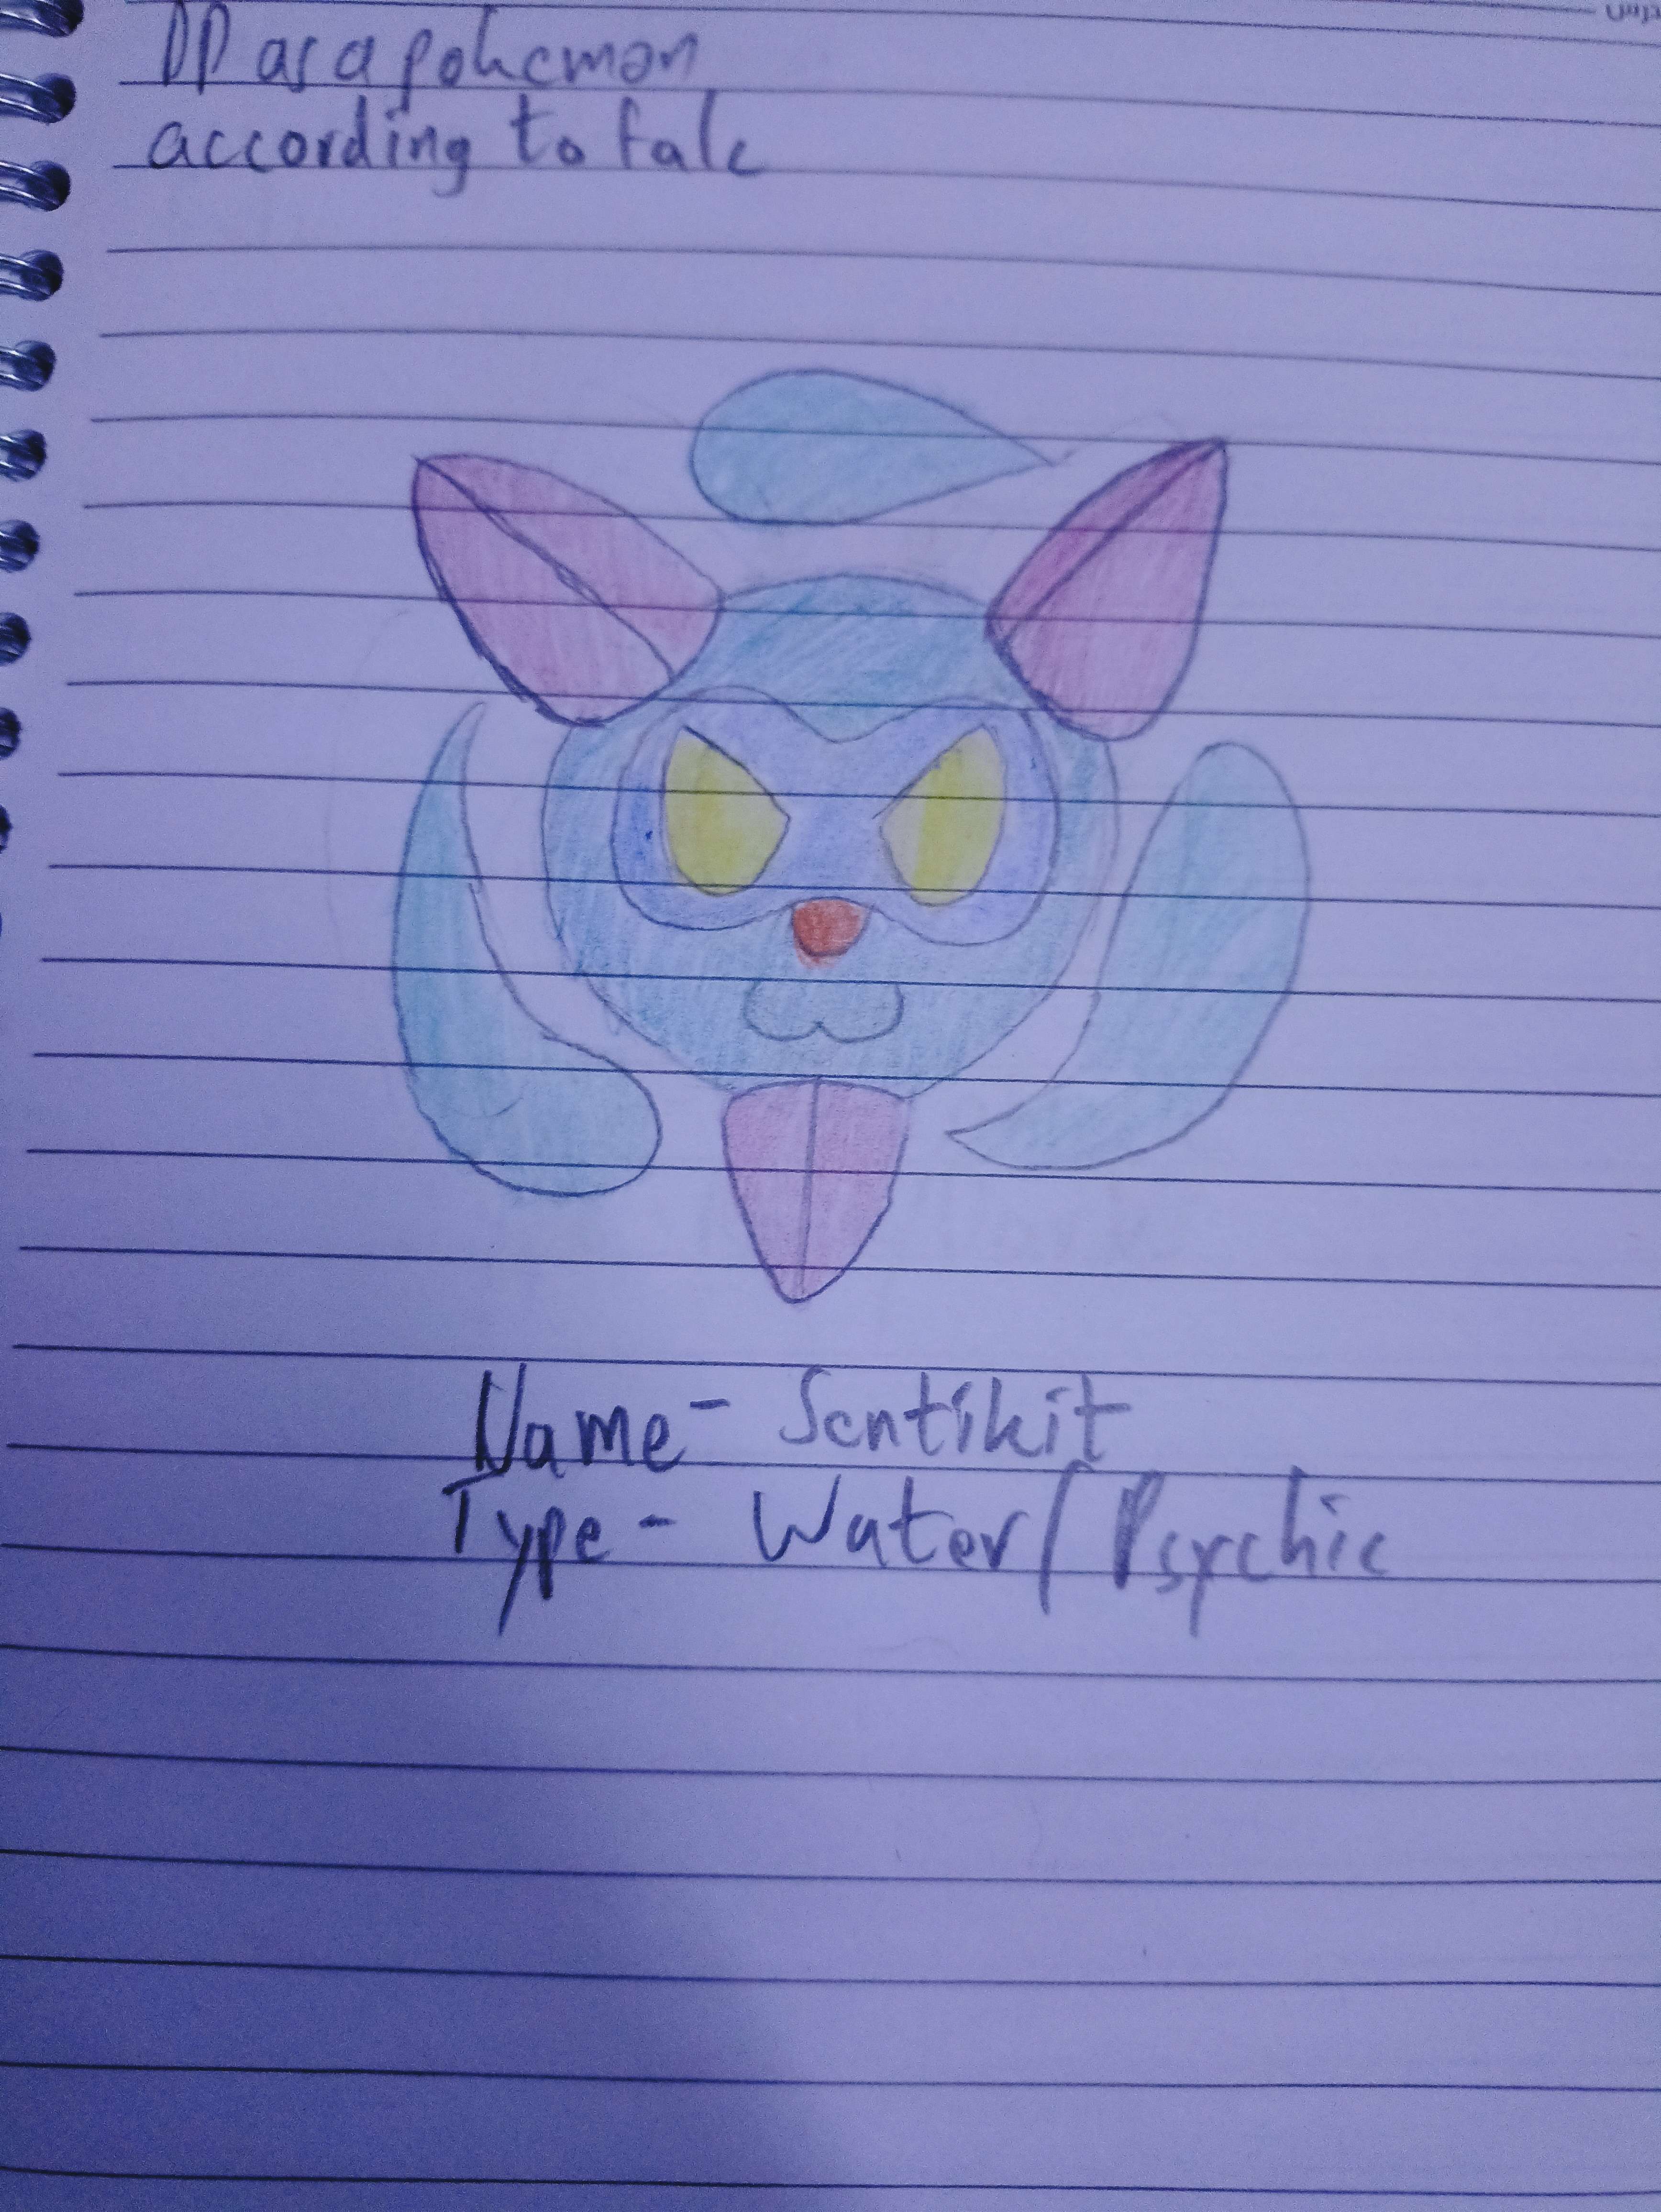 DP as a pokemon
according to fale
Name - Sentikit
Type - Water/Psychic